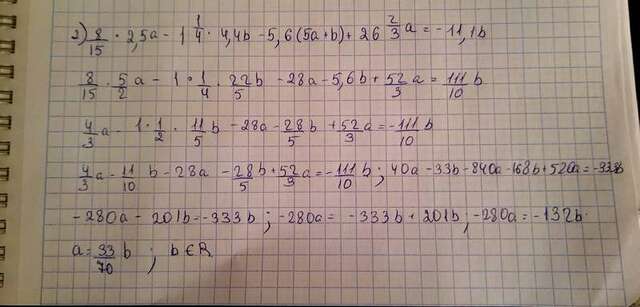 2) 8/15 · 2,5a - 1 1/4 · 4,4b - 5,6(5a+b) + 26 2/3 a = -11,1b
8/15 · 5/2 a - 1 · 1/4 · 22/5 b - 28a - 5,6b + 52/3 a = 111/10 b
4/3 a - 1·1/2 · 11/5 b - 28a - 28/5 b + 52/3 a = -111/10 b
4/3 a - 11/10 b - 28a - 28/5 b + 52/3 a = -111/10 b ; 40a - 33b - 840a - 168b + 520a = -333b
-280a - 201b = -333b ; -280a = -333b + 201b ; -280a = -132b
a = 33/70 b ; b ∈ R